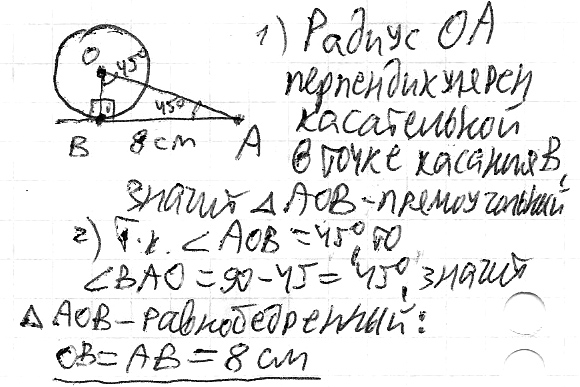 O
45°
45°
B 8 см A
1) Радиус OA
перпендикулярен
касательной
в точке касания B,
значит △ AOB – прямоугольный
2) Т.к. ∠ AOB = 45°, то
∠BAO = 90 – 45 = 45°, значит
△ AOB – равнобедренный:
OB = AB = 8 см